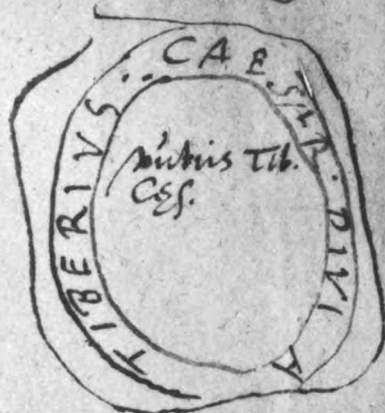 TIBERIVS·. CAESAR· DIVI A
Tib.
Cęs.